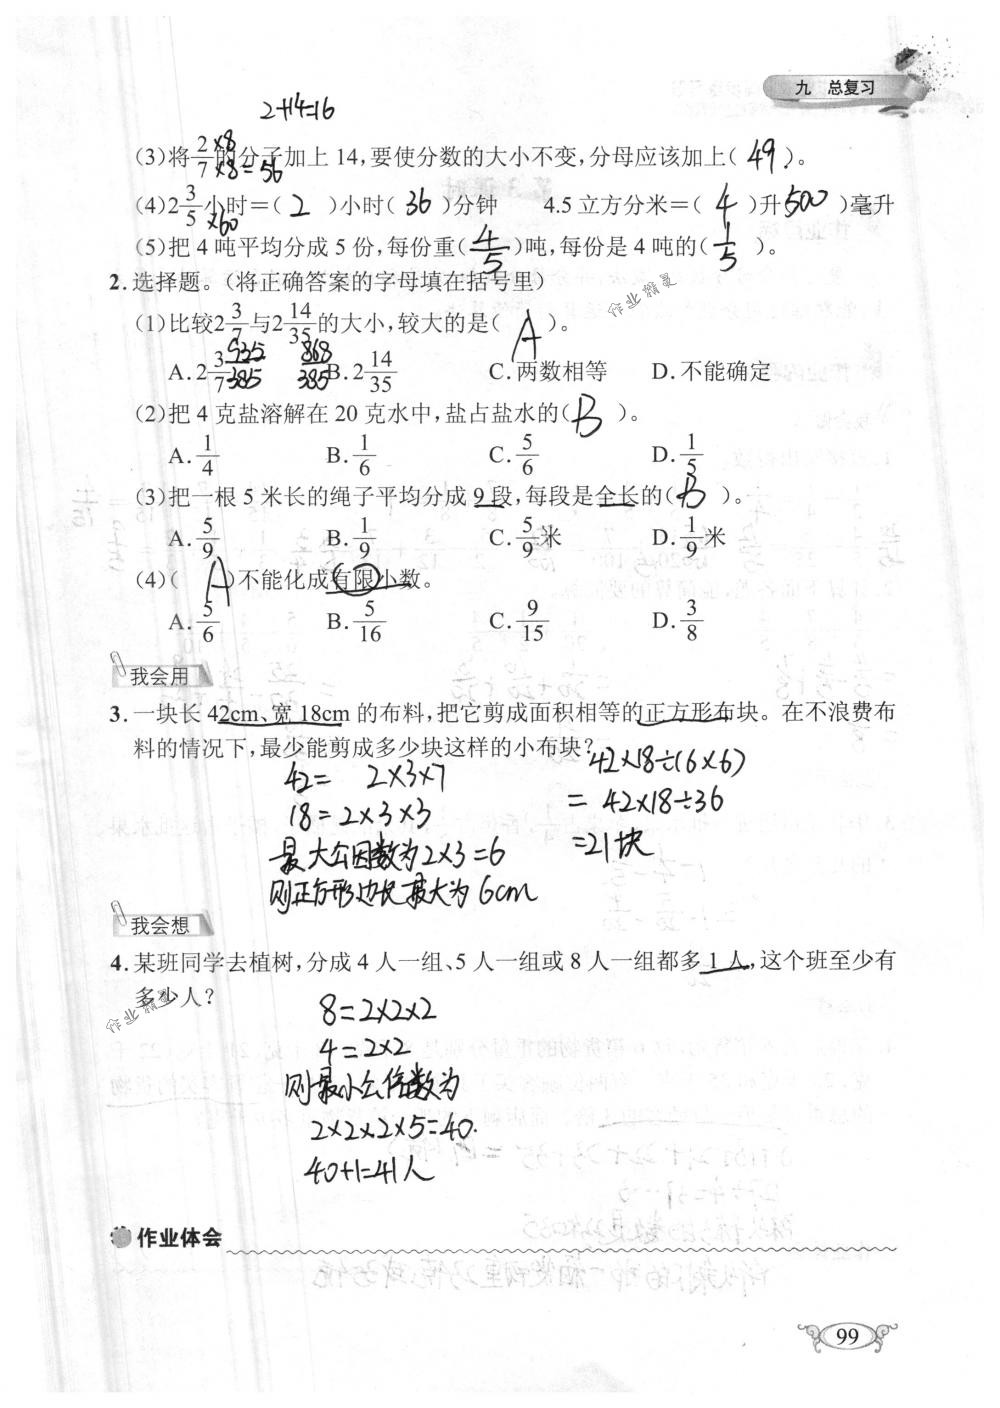 九 总复习
2+14=16
(3)将2/7的分子加上14,要使分数的大小不变,分母应该加上( 49 )。
×8
×8=56
(4)2 3/5小时=( 2 )小时( 36 )分钟 4.5立方分米=( 4 )升( 500 )毫升
×60
(5)把4吨平均分成5份,每份重( 4/5 )吨,每份是4吨的( 1/5 )。
2.选择题。(将正确答案的字母填在括号里)
作业精灵
(1)比较2 3/7与2 14/35的大小,较大的是( A )。
A.2 3/7 935/385 868/385 B.2 14/35 C.两数相等 D.不能确定
(2)把4克盐溶解在20克水中,盐占盐水的( B )。
A.1/4 B.1/6 C.5/6 D.1/5
(3)把一根5米长的绳子平均分成9段,每段是全长的( B )。
A.5/9 B.1/9 C.5/9米 D.1/9米
(4)( A )不能化成有限小数。
A.5/6 B.5/16 C.9/15 D.3/8
我会用
3.一块长42cm、宽18cm的布料,把它剪成面积相等的正方形布块。在不浪费布
料的情况下,最少能剪成多少块这样的小布块?
42= 2×3×7
18=2×3×3
最大公因数为2×3=6
则正方形边长最大为6cm
42×18÷(6×6)
=42×18÷36
=21块
我会想
4.某班同学去植树,分成4人一组、5人一组或8人一组都多1人,这个班至少有
多少人?
作业精灵
8=2×2×2
4=2×2
则最小公倍数为
2×2×2×5=40.
40+1=41人
作业体会
99